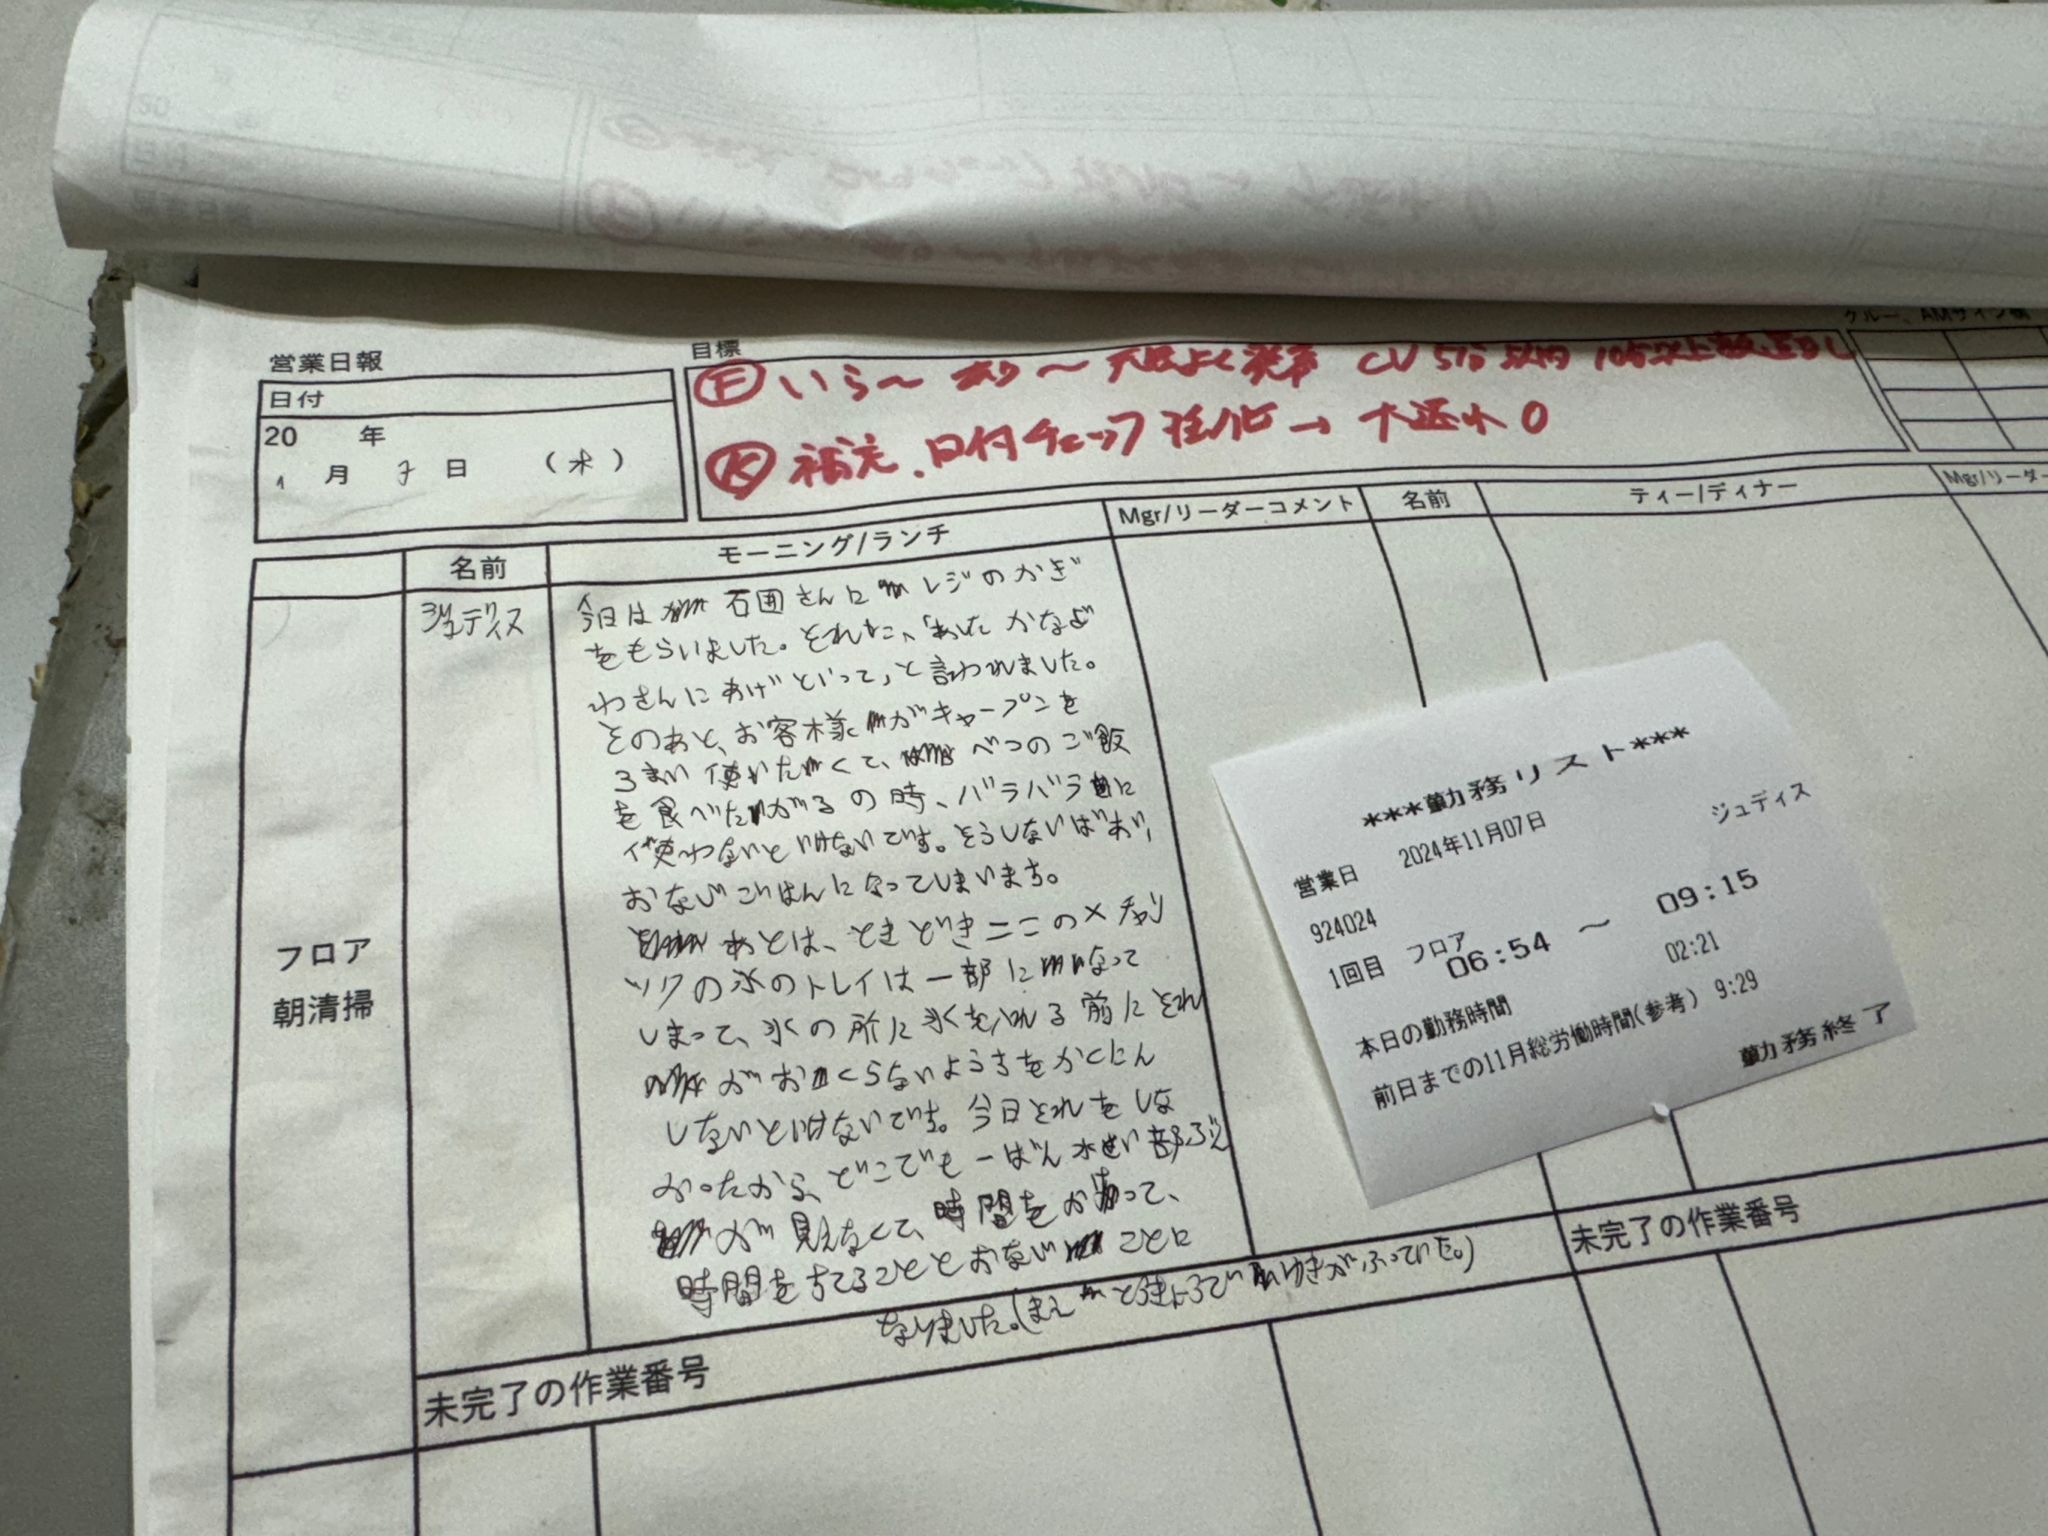 営業日報
日付
20 年
月 日 (木)
目標
Ⓕ いら〜 〜 CV 5分以内 10分以上
Ⓚ 補充、日付チェック強化 → 0
クルー、AMサイン欄
名前
モーニング/ランチ
Mgr/リーダーコメント
名前
ティー/ディナー
Mgr/リーダー
フロア
朝清掃
ジュディス
今日は 石田さんに レジのかぎ
をもらいました。それに、「あした かなざ
わさんに あげといって」と言われました。
そのあと、お客様がキャープンを
2まい使いたくて、べつのご飯
を食べたがるの時、バラバラに
使わないといけないです。そうしないばあい、
おなじごはんになってしまいます。
あとは、ときどきここの
ックの氷のトレイは一部に なって
しまって、氷の所に氷を入れる前にそれ
が おくらないようさをかくにん
しないといけないです。今日それをしな
かったから、どこでも一ばん 部ぶん
が見えなくて、時間をかかって、
時間をすてることとおなじ ことに
なりました。(まえ ゆきがふっていた。)
未完了の作業番号
未完了の作業番号
***勤務リスト***
営業日 2024年11月07日
924024 ジュディス
1回目 フロア
06:54 〜 09:15
本日の勤務時間 02:21
前日までの11月総労働時間(参考) 9:29
勤務終了